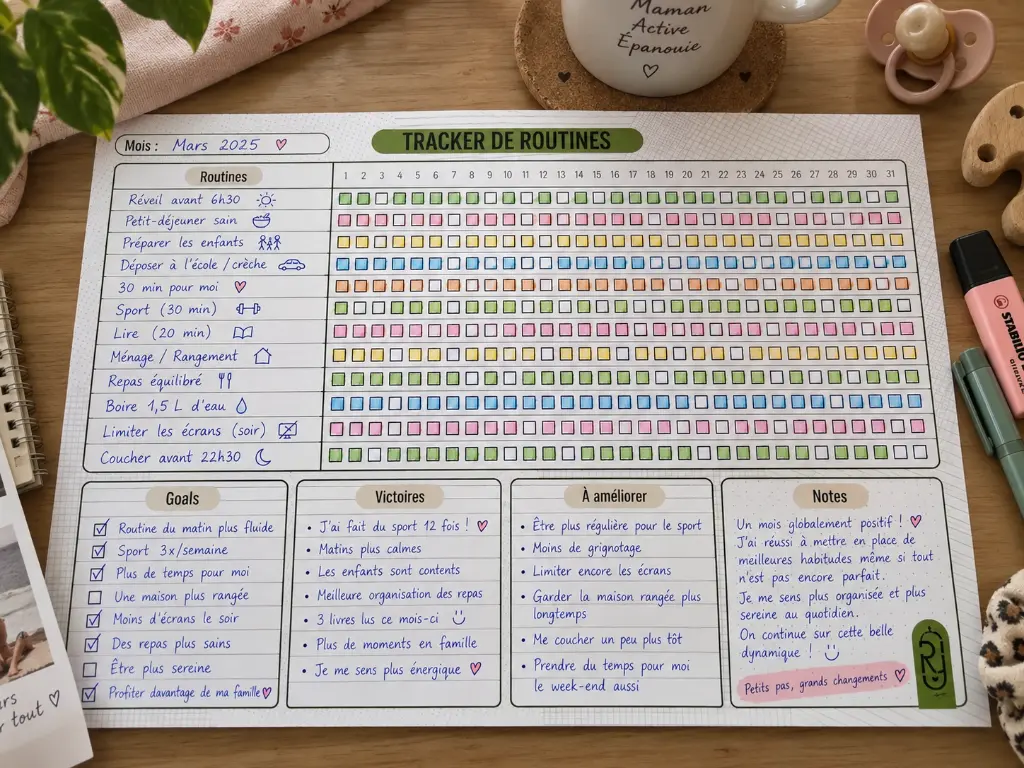 Maman
Active
Épanouie
TRACKER DE ROUTINES
Mois : Mars 2025
Routines
1 2 3 4 5 6 7 8 9 10 11 12 13 14 15 16 17 18 19 20 21 22 23 24 25 26 27 28 29 30 31
Réveil avant 6h30
Petit-déjeuner sain
Préparer les enfants
Déposer à l'école / crèche
30 min pour moi
Sport (30 min)
Lire (20 min)
Ménage / Rangement
Repas équilibré
Boire 1,5 L d'eau
Limiter les écrans (soir)
Coucher avant 22h30
Goals
Routine du matin plus fluide
Sport 3x/semaine
Plus de temps pour moi
Une maison plus rangée
Moins d'écrans le soir
Des repas plus sains
Être plus sereine
Profiter davantage de ma famille
Victoires
• J'ai fait du sport 12 fois !
• Matins plus calmes
• Les enfants sont contents
• Meilleure organisation des repas
• 3 livres lus ce mois-ci
• Plus de moments en famille
• Je me sens plus énergique
À améliorer
• Être plus régulière pour le sport
• Moins de grignotage
• Limiter encore les écrans
• Garder la maison rangée plus
longtemps
• Me coucher un peu plus tôt
• Prendre du temps pour moi
le week-end aussi
Notes
Un mois globalement positif !
J'ai réussi à mettre en place de
meilleures habitudes même si tout
n'est pas encore parfait.
Je me sens plus organisée et plus
sereine au quotidien.
On continue sur cette belle
dynamique !
Petits pas, grands changements
STABILO
tout